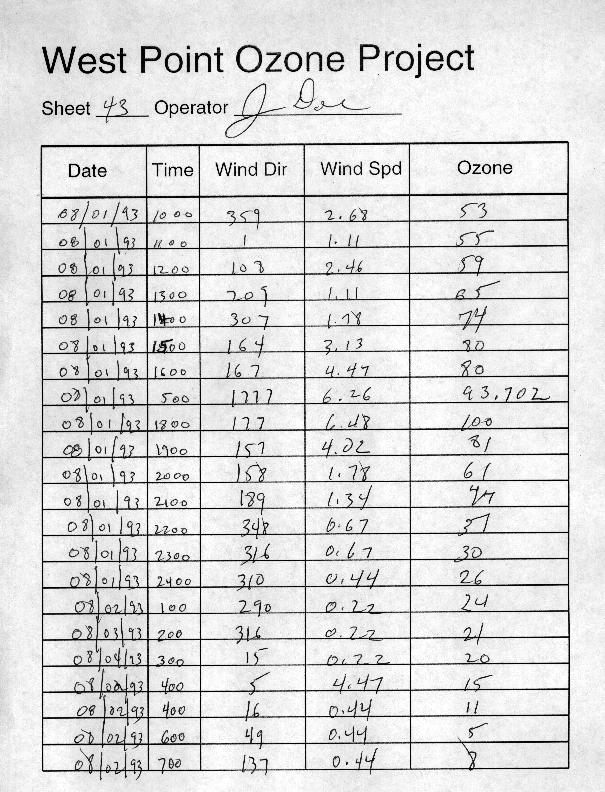 West Point Ozone Project
Sheet 43 Operator J Doe
Date Time Wind Dir Wind Spd Ozone
08/01/93 1000 359 2.68 53
08/01/93 1100 1 1.11 55
08/01/93 1200 108 2.46 59
08/01/93 1300 209 1.11 65
08/01/93 1400 307 1.78 74
08/01/93 1500 164 3.13 80
08/01/93 1600 167 4.47 80
08/01/93 500 1777 6.26 93.702
08/01/93 1800 177 6.48 100
08/01/93 1900 157 4.02 81
08/01/93 2000 158 1.78 61
08/01/93 2100 189 1.34 47
08/01/93 2200 348 0.67 37
08/01/93 2300 316 0.67 30
08/01/93 2400 310 0.44 26
08/02/93 100 290 0.22 24
08/03/93 200 316 0.22 21
08/04/23 300 15 0.22 20
08/02/93 400 5 4.47 15
08/02/93 400 16 0.44 11
08/02/93 600 49 0.44 5
08/02/93 700 137 0.44 8